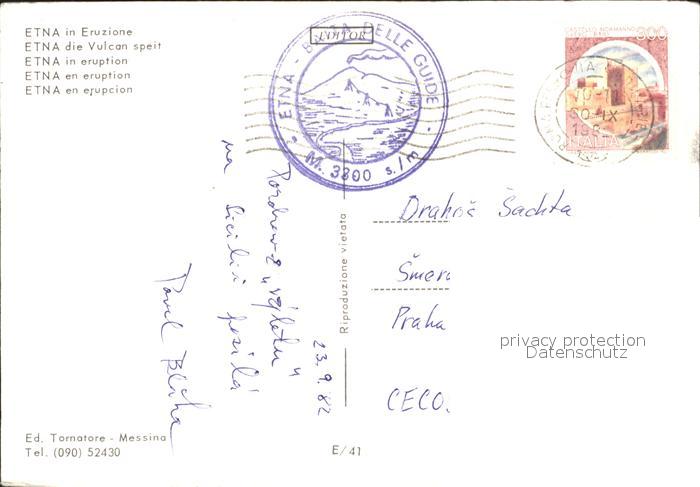 ETNA in Eruzione
ETNA die Vulcan speit
ETNA in eruption
ETNA en eruption
ETNA en erupcion
EDITOR
ETNA - DELLE GUIDE
M. 3300 s/m
800
ITALIA
Pozdrav z výletu
na Sicílii posílá
Pavel Bláha
23.9.82
Riproduzione vietata
Šachta
Praha
ČECO.
privacy protection
Datenschutz
Ed. Tornatore - Messina
Tel. (090) 52430
E/41